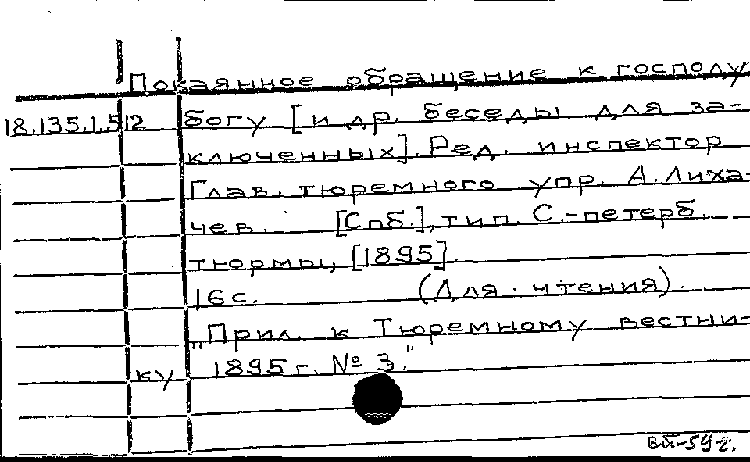 Покаянное обращение к господу
18.135.1.512 богу [и др. беседы для за-
ключенных]. Ред. инспектор
Глав. тюремного упр. А. Лиха-
чев. [Спб.], тип. С.-петерб.
тюрмы, [1895].
16 с. (Для чтения).
"Прил. к Тюремному вестни-
ку 1895 г. № 3."
вп-59 г.